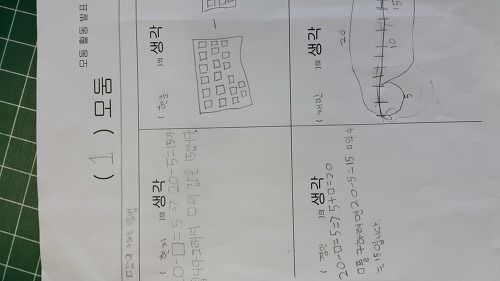 모둠 활동 발표
( 1 ) 모둠
( 현준 )의 생각
( 재빈 )의 생각
20
15
10
5
0
( 현지 )의 생각
20-□=5 ⇒ 20-5=15가
됩니다 그래서 □의 값은 15입니다.
( 경민 )의 생각
20-□=5 ⇒ 5+□=20
□를 구하려면 20-5=15 □의 수
는 15입니다.